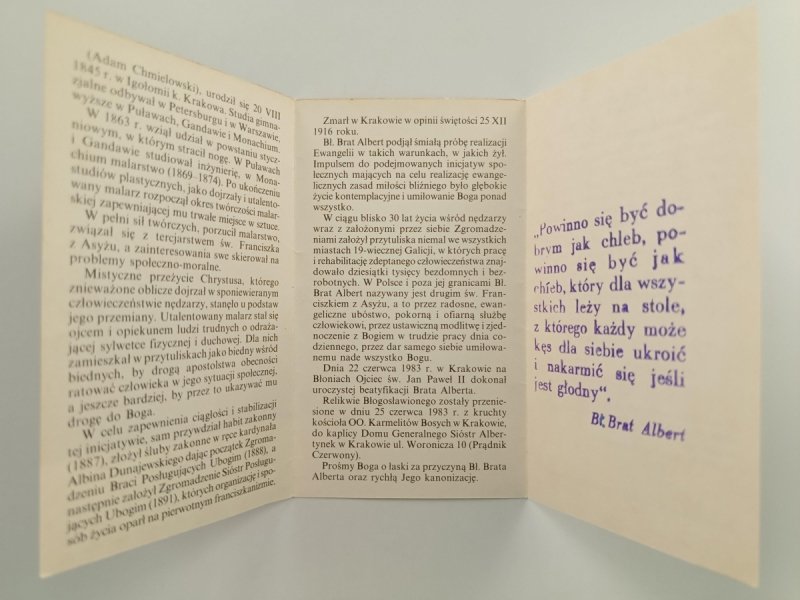 (Adam Chmielowski), urodził się 20 VIII
1845 r. w Igołomii k. Krakowa. Studia gimna-
zjalne odbywał w Petersburgu i w Warszawie,
wyższe w Puławach, Gandawie i Monachium.
W 1863 r. wziął udział w powstaniu stycz-
niowym, w którym stracił nogę. W Puławach
i Gandawie studiował inżynierię, w Mona-
chium malarstwo (1869-1874). Po ukończeniu
studiów plastycznych, jako dojrzały i utalento-
wany malarz rozpoczął okres twórczości malar-
skiej zapewniającej mu trwałe miejsce w sztuce.
W pełni sił twórczych, porzucił malarstwo,
związał się z tercjarstwem św. Franciszka
z Asyżu, a zainteresowania swe skierował na
problemy społeczno-moralne.
Mistyczne przeżycie Chrystusa, którego
znieważone oblicze dojrzał w sponiewieranym
człowieczeństwie nędzarzy, stanęło u podstaw
jego przemiany. Utalentowany malarz stał się
ojcem i opiekunem ludzi trudnych o odraża-
jącej sylwetce fizycznej i duchowej. Dla nich
zamieszkał w przytuliskach jako biedny wśród
biednych, by drogą apostolstwa obecności
ratować człowieka w jego sytuacji społecznej,
a jeszcze bardziej, by przez to ukazywać mu
drogę do Boga.
W celu zapewnienia ciągłości i stabilizacji
tej inicjatywie, sam przywdział habit zakonny
(1887), złożył śluby zakonne w ręce kardynała
Albina Dunajewskiego dając początek Zgroma-
dzeniu Braci Posługujących Ubogim (1888), a
następnie założył Zgromadzenie Sióstr Posługu-
jących Ubogim (1891), których organizację i spo-
sób życia oparł na pierwotnym franciszkanizmie.
Zmarł w Krakowie w opinii świętości 25 XII
1916 roku.
Bł. Brat Albert podjął śmiałą próbę realizacji
Ewangelii w takich warunkach, w jakich żył.
Impulsem do podejmowanych inicjatyw spo-
łecznych mających na celu realizację ewange-
licznych zasad miłości bliźniego było głębokie
życie kontemplacyjne i umiłowanie Boga ponad
wszystko.
W ciągu blisko 30 lat życia wśród nędzarzy
wraz z założonymi przez siebie Zgromadze-
niami założył przytuliska niemal we wszystkich
miastach 19-wiecznej Galicji, w których pracę
i rehabilitację zdeptanego człowieczeństwa znaj-
dowało dziesiątki tysięcy bezdomnych i bez-
robotnych. W Polsce i poza jej granicami Bł.
Brat Albert nazywany jest drugim św. Fran-
ciszkiem z Asyżu, a to przez radosne, ewan-
geliczne ubóstwo, pokorną i ofiarną służbę
człowiekowi, przez ustawiczną modlitwę i zjed-
noczenie z Bogiem w trudzie pracy dnia co-
dziennego, przez dar samego siebie umiłowa-
nemu nade wszystko Bogu.
Dnia 22 czerwca 1983 r. w Krakowie na
Błoniach Ojciec św. Jan Paweł II dokonał
uroczystej beatyfikacji Brata Alberta.
Relikwie Błogosławionego zostały przenie-
sione w dniu 25 czerwca 1983 r. z kruchty
kościoła OO. Karmelitów Bosych w Krakowie,
do kaplicy Domu Generalnego Sióstr Alber-
tynek w Krakowie ul. Woronicza 10 (Prądnik
Czerwony).
Prośmy Boga o łaski za przyczyną Bł. Brata
Alberta oraz rychłą Jego kanonizację.
„Powinno się być do-
brym jak chleb, po-
winno się być jak
chleb, który dla wszy-
stkich leży na stole,
z którego każdy może
kęs dla siebie ukroić
i nakarmić się jeśli
jest głodny".
Bł. Brat Albert